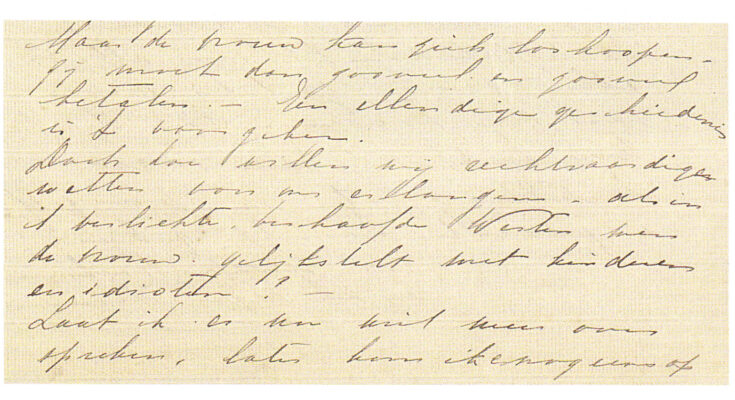 Maar de vrouw kan zich loskoopen –
zij moet dan zooveel en zooveel
betalen. – Een ellendige geschiedenis
is 't voor
Doch hoe willen wij rechtvaardige
wetten voor ons erlangen – als in
't verlichte, beschaafde Westen men
de vrouw gelijkstelt met kinderen
en idioten!? –
Laat ik er nu niet meer over
spreken, later kom ik er nog eens op